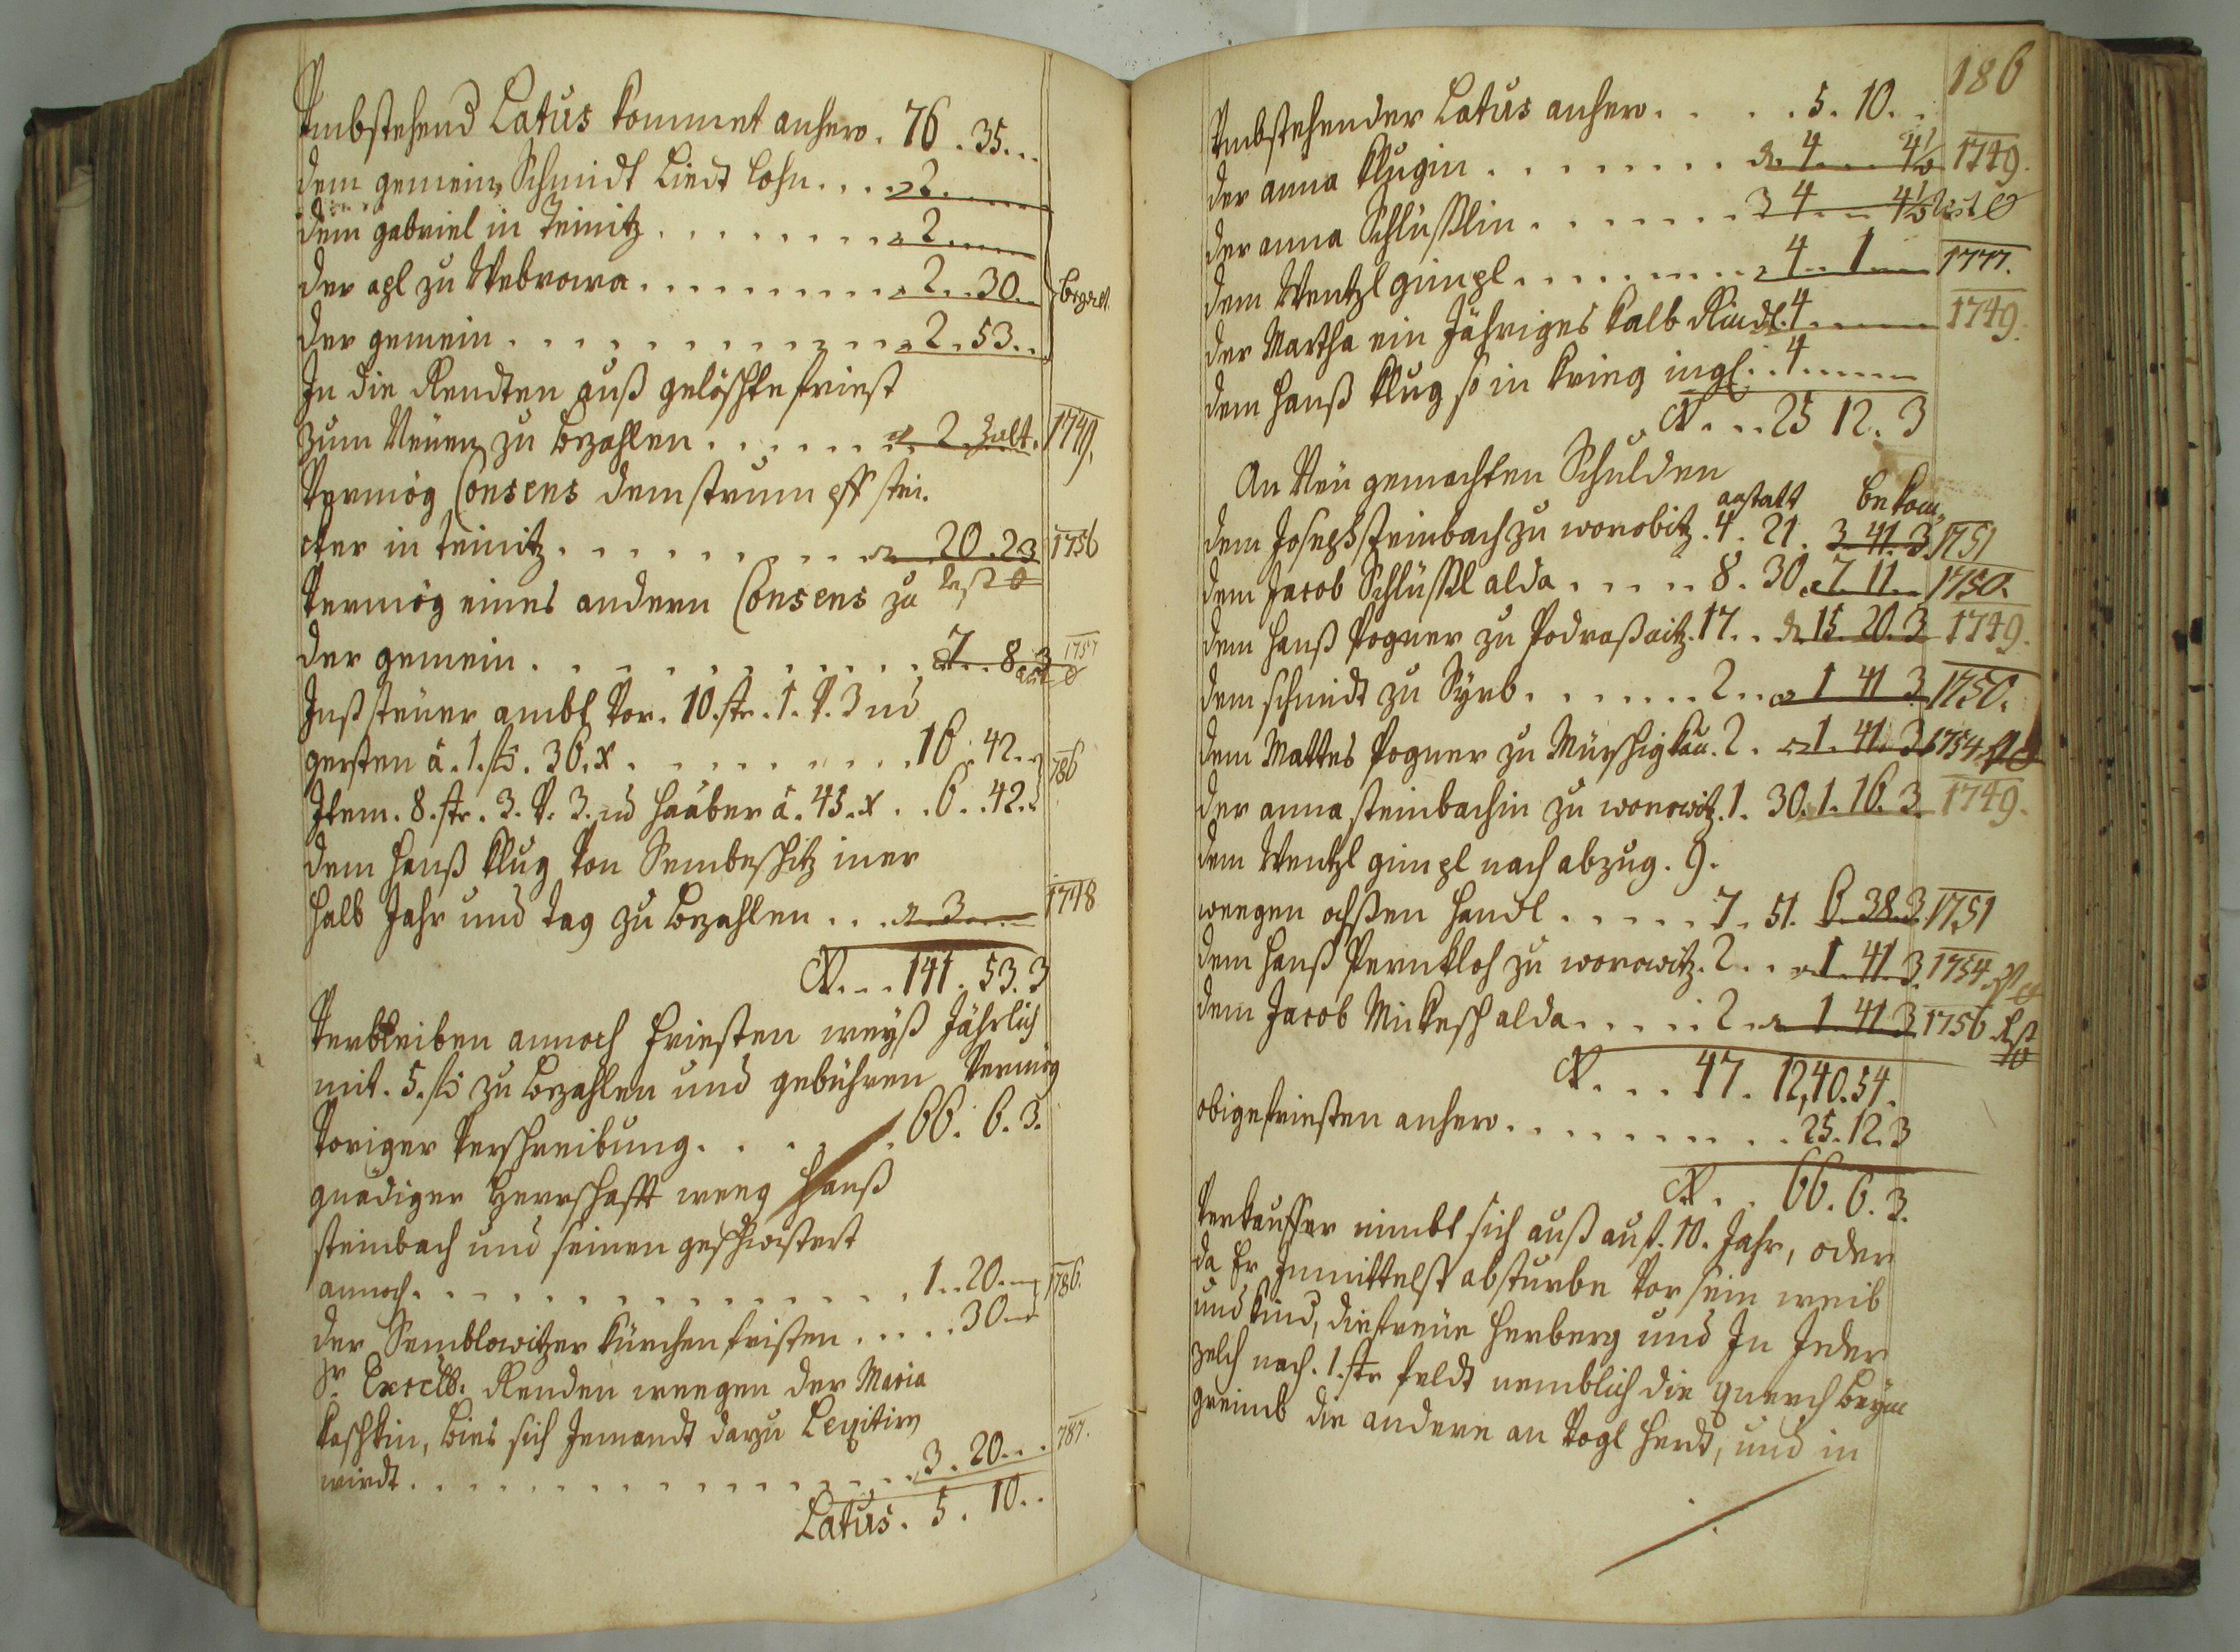 Umbstehend Latus kommet anhero. 76. 35...
dem gemein Schmidt Liedt lohn.... 2.
dem gabriel in Teinitz........ 2....
der apl zu Webrowa......... 2..30..
bezalt
der gemein............ 2. 53..
In die Rendten auß gelöschte friest
zum Neuen zu bezahlen...... 2. zalt. 1749.
Vermög Consens dem
cker in teinitz......... 20. 23 1756
Rest
Vermög eines andern Consens zu
der gemein............ 7.. 8. 3 1757
Zinß steuer ambt Vor. 10. str. 1. V. 3 nd
gersten à. 1. fl. 36. x.......... 16. 42.. 786
Item. 8. str. 3. V. 3. nd haaber à. 45. x.. 6..42..
dem hanß klug Von Semeschitz iner
halb Jahr und tag zu bezahlen... 3.... 1748
141. 53. 3
Verbleiben annoch friesten weyß Jährlich
mit. 5. fl zu bezahlen und gebühren Vermög
Voriger Verschreibung...... 66. 6. 3.
gnädiger herrschafft weeg hanß
steinbach und seinen geschwistert
annoch................ 1..20.. 1786.
der Semblowitzer kürchen fristen..... 30
Sr. Excellb. Renden weegen der Maria
kaschkin, bies sich Jemandt darzu Legitim
wirdt................ 3. 20... 787.
Latus. 5. 10..
186
Umbstehender Latus anhero..... 5. 10..
der anna klugin........ 4... 4½ 1749.
der anna Schlüsslin....... 3 4... 4½ Rest
dem Wentzl gimpl........ 4.. 1... 1777.
der Martha ein Jähriges kalb Riedl. 4...... 1749.
dem hanß klug so in krieg ingl.. 4......
25 12. 3
An Neu gemachten Schulden
anstatt bekom
dem Joseph steinbach zu worobitz. 4. 21. 3. 41. 3. 1751
dem Jacob Schlüssl alda..... 8. 30. 7. 11.. 1750.
dem hanß Pogner zu Podraßnitz. 17.. 15. 20. 3 1749.
dem schmidt zu Syrb....... 2.. 1 41 3. 1750.
dem Mattes Pogner zu Mürschigkau. 2. 1. 41. 3 1754
der anna steinbachin zu worowitz. 1. 30. 1. 16. 3. 1749.
dem Wentzl gimpl nach abzug. 9.
weegen ochsen handl..... 7. 51. 6. 38. 3. 1751
dem hanß Pernkloh zu worowitz. 2... 1. 41. 3. 1754
dem Jacob Mickesch alda..... 2.. 1. 41 3 1756 Rest
47. 12, 40. 54.
obige friesten anhero......... 25. 12. 3
66. 6. 3.
Verkauffer nimbt sich auß auf. 10. Jahr, oder
da Er Inmittelst absturbe Vor sein weib
und kind, die freüe herberg und In Jeder
zelch nach. 1. str feldt nemblich die querch beym
greimb die andere an Vogl herdt, und in